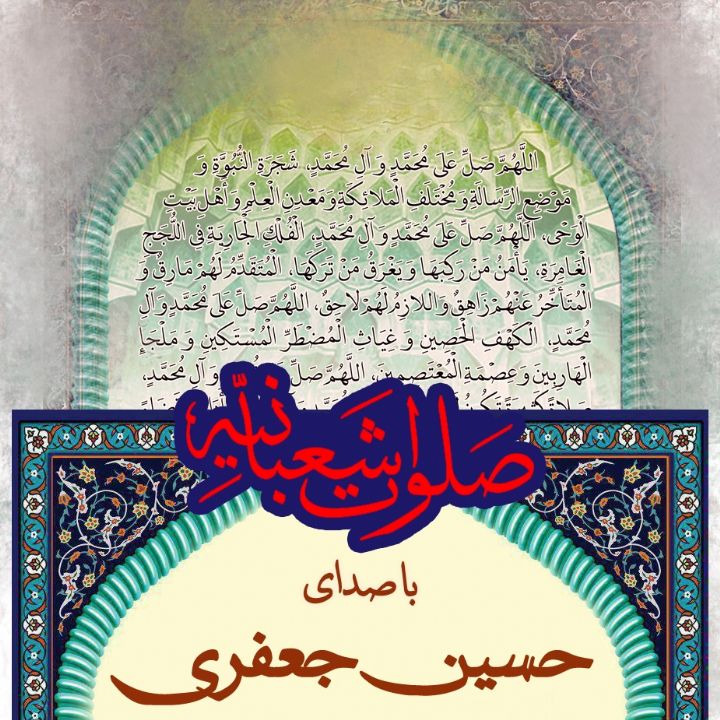 اللَّهُمَّ صَلِّ عَلَى مُحَمَّدٍ وَ آلِ مُحَمَّدٍ، شَجَرَةِ النُّبُوَّةِ وَ
مَوْضِعِ الرِّسَالَةِ وَ مُخْتَلَفِ الْمَلائِكَةِ وَ مَعْدِنِ الْعِلْمِ وَ أَهْلِ بَيْتِ
الْوَحْيِ، اللَّهُمَّ صَلِّ عَلَى مُحَمَّدٍ وَ آلِ مُحَمَّدٍ، الْفُلْكِ الْجَارِيَةِ فِي اللُّجَجِ
الْغَامِرَةِ، يَأْمَنُ مَنْ رَكِبَهَا وَ يَغْرَقُ مَنْ تَرَكَهَا، الْمُتَقَدِّمُ لَهُمْ مَارِقٌ وَ
الْمُتَأَخِّرُ عَنْهُمْ زَاهِقٌ وَ اللازِمُ لَهُمْ لاحِقٌ، اللَّهُمَّ صَلِّ عَلَى مُحَمَّدٍ وَ آلِ
مُحَمَّدٍ، الْكَهْفِ الْحَصِينِ وَ غِيَاثِ الْمُضْطَرِّ الْمُسْتَكِينِ وَ مَلْجَإِ
الْهَارِبِينَ وَ عِصْمَةِ الْمُعْتَصِمِينَ، اللَّهُمَّ صَلِّ وَ آلِ مُحَمَّدٍ،
صلوات شعبانیّه
با صدای
حسین جعفری